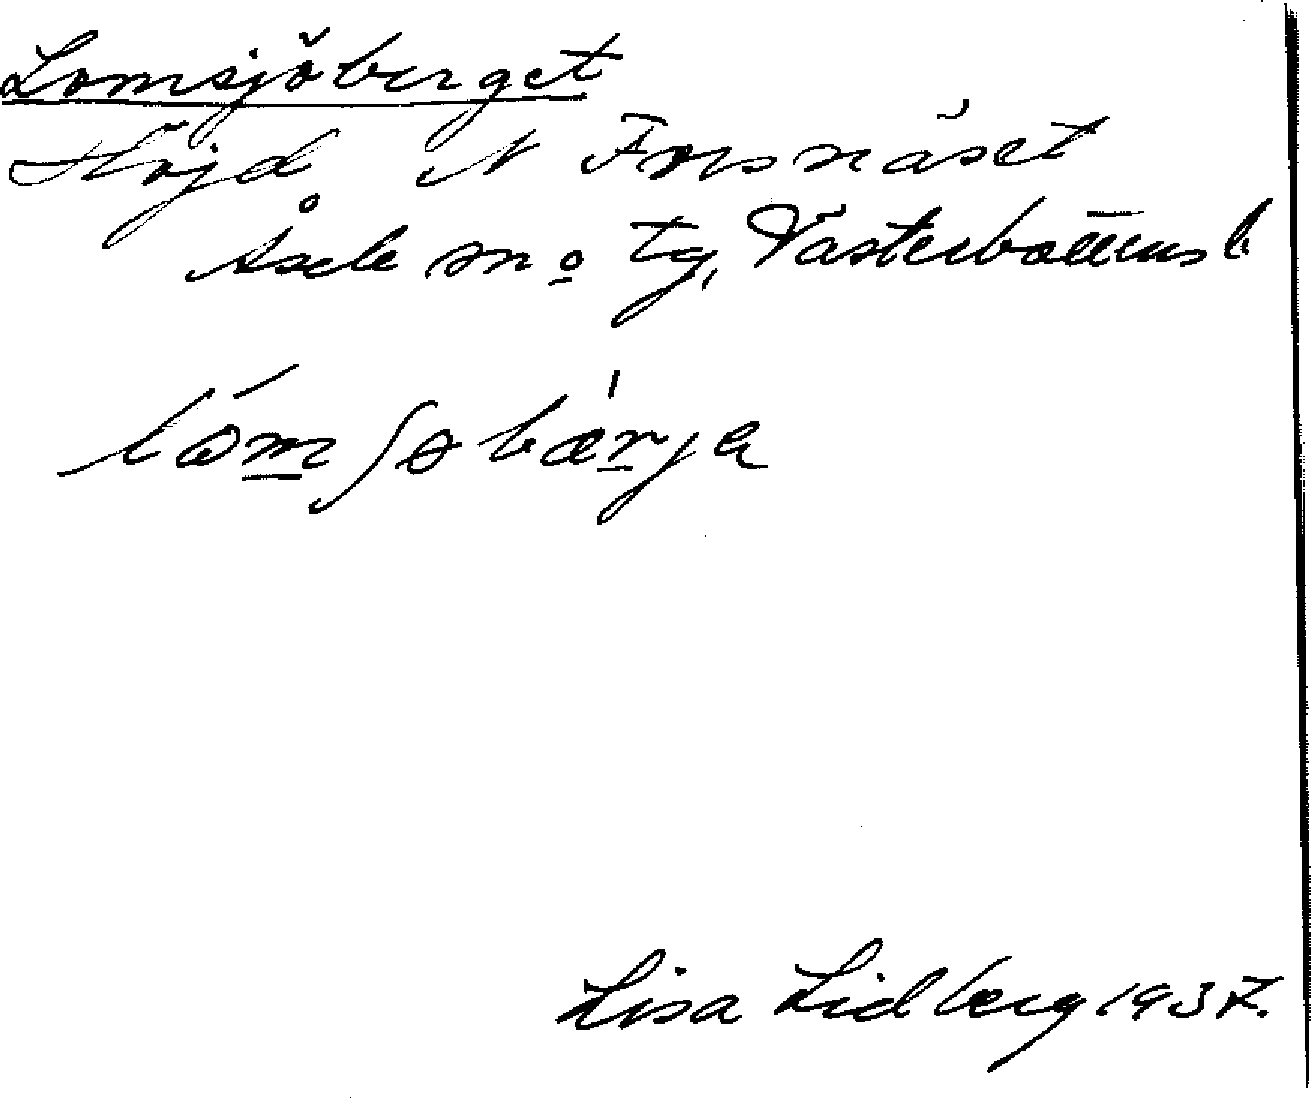 Lomsjöberget
Höjd N Forsnäset
Åsele sn o tg, Västerbottens l
lóm ʃɵ bærja
Lisa Lidberg 1937.